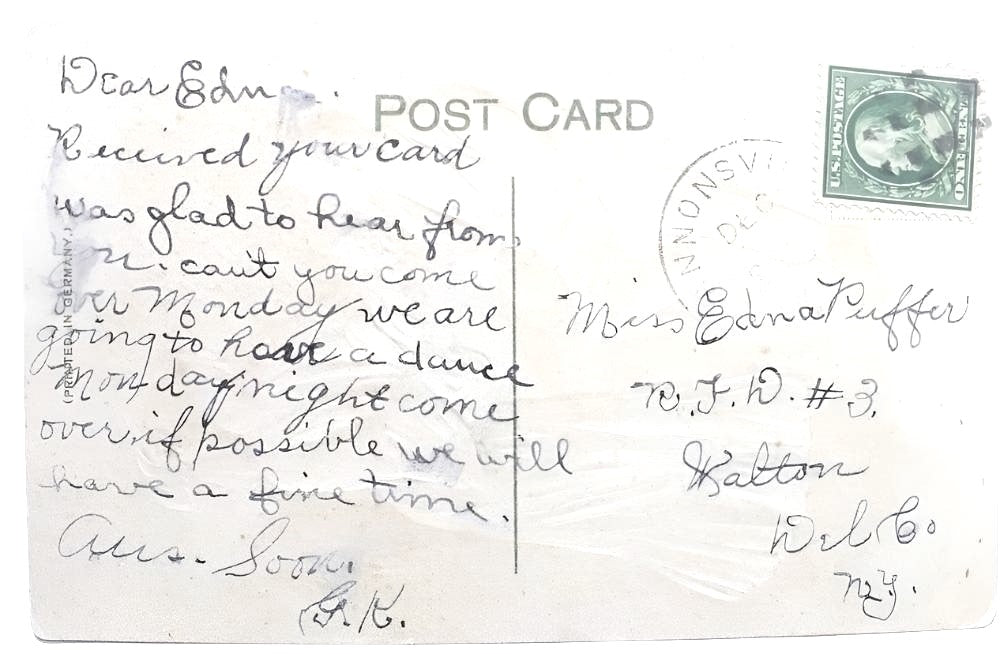 Dear Edn
POST CARD
Received your card
was glad to hear from
can't you come
over Monday we are
going to have a dance
Monday night come
over if possible we will
have a fine time.
Ans. Soon.
G. K.
(PRINTED IN GERMANY.)
U.S. POSTAGE
NNONSV
DEC
Miss Edna Puffer
R. F. D. #3.
Walton
Del Co
N.Y.